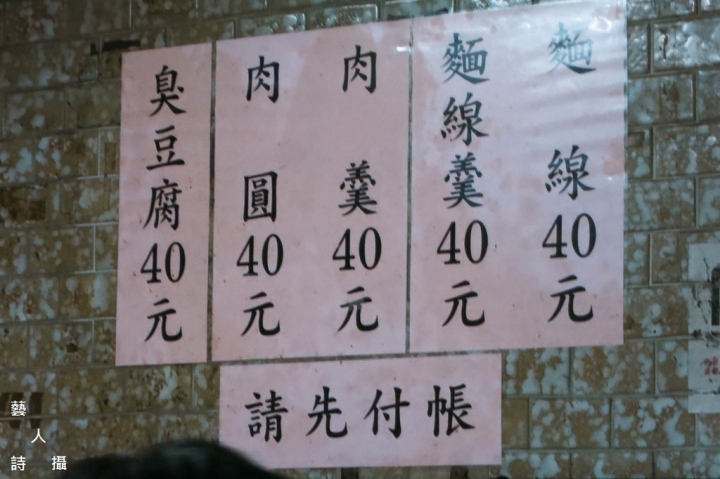 麵線40元
麵線羹40元
肉羹40元
肉圓40元
臭豆腐40元
請先付帳
藝人詩攝